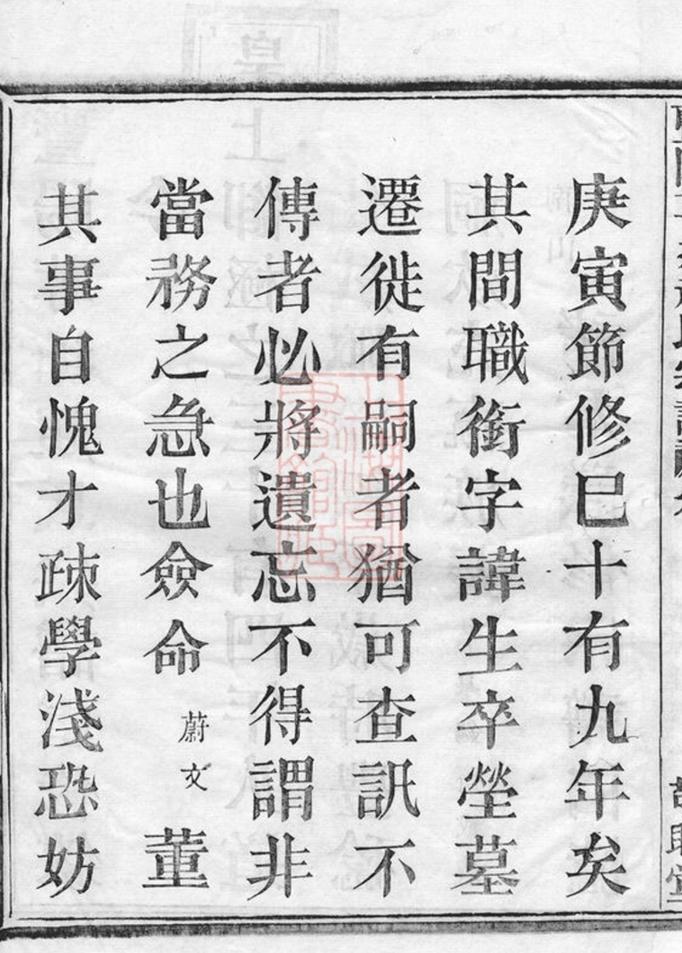 庚寅節修巳十有九年矣
其間職銜字諱生卒塋墓
遷徙有嗣者猶可查訊不
傳者必將遺忘不得謂非
當務之急也僉命蔚文董
其事自愧才疎學淺恐妨